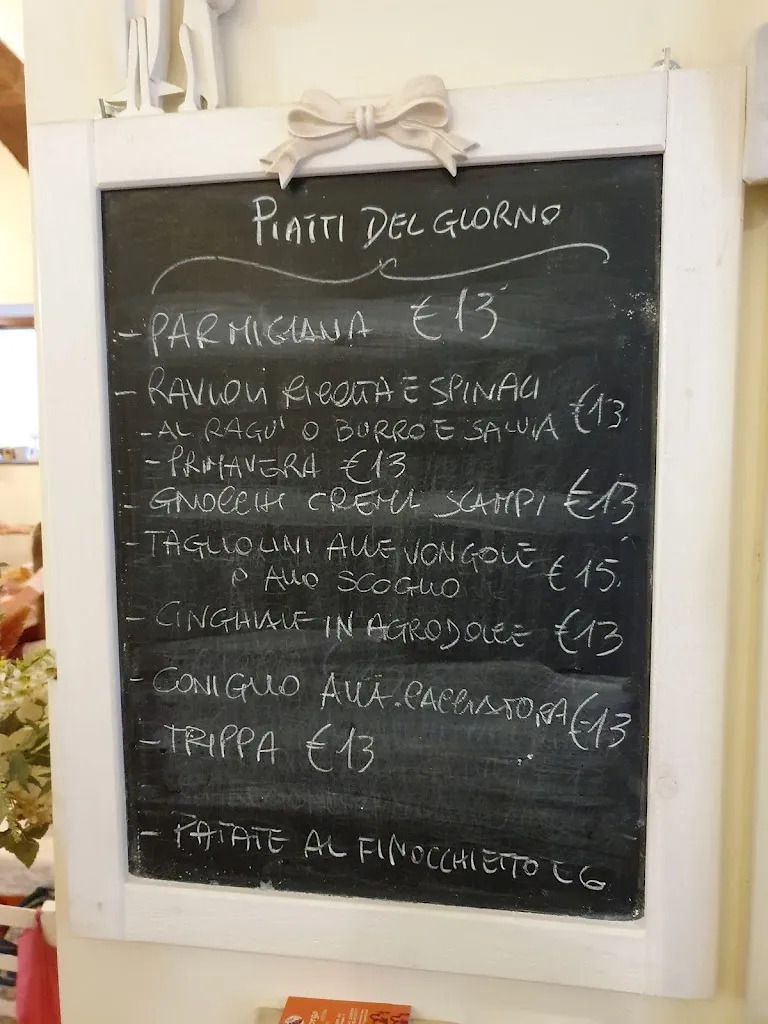 PIATTI DEL GIORNO
- PARMIGIANA €13
- RAVIOLI RICOTTA E SPINACI
- AL RAGU' O BURRO E SALVIA €13
- PRIMAVERA €13
- GNOCCHI CREMA SCAMPI €13
- TAGLIOLINI ALLE VONGOLE
O ALLO SCOGLIO €15
- CINGHIALE IN AGRODOLCE €13
- CONIGLIO ALLA CACCIATORA €13
- TRIPPA €13
- PATATE AL FINOCCHIETTO €6